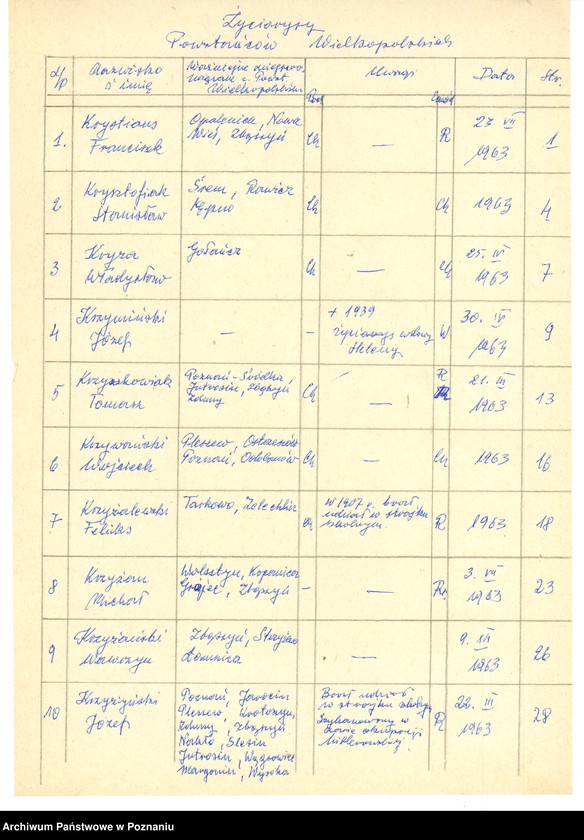 Życiorysy
Powstańców Wielkopolskich
L/p Nazwisko i imię Uwagi Data Str.
1. Krystians Franciszek Opalenica, Nowa Wieś, Zbąszyń Ch — R 27 VII 1963 1
2 Krysztofiak Stanisław Śrem, Rawicz Kępno Ch Ch 1963 4
3 Kryza Władysław Gołańcz Ch — Ch 25. IV 1963 7
4 Krzymiński Józef — – + 1939 życiorys wdowy Heleny W 30. IV 1963 9
5 Krzyszkowiak Tomasz Poznań-Śródka, Jutrosin, Zbąszyń Zduny Ch — R 21. III 1963 13
6 Krzywoński Wojciech Pleszew, Ostrzeszów Poznań, Odolanów Ch — Ch 1963 16
7 Krzyżaleski Feliks Tarkowo, Ch w 1907 r. brał udział w strajku szkolnym R 1963 18
8 Krzyżan Michał Wolsztyn, Kopanica Grójec, Zbąszyń – — R. 3. VII 1963 23
9 Krzyżański Wawrzyn Zbąszyń, Łomnica — 9. III 1963 26
10 Krzyżyński Józef Poznań, Jarocin Pleszew, Krotoszyn, Zduny, Zbąszyń Nakło, Ślesin Jutrosin, Wągrowiec Margonin, Wysoka Brał udział w strajku szkolnym w czasie okupacji hitlerowskiej R 22. III 1963 28
Archiwum Państwowe w Poznaniu